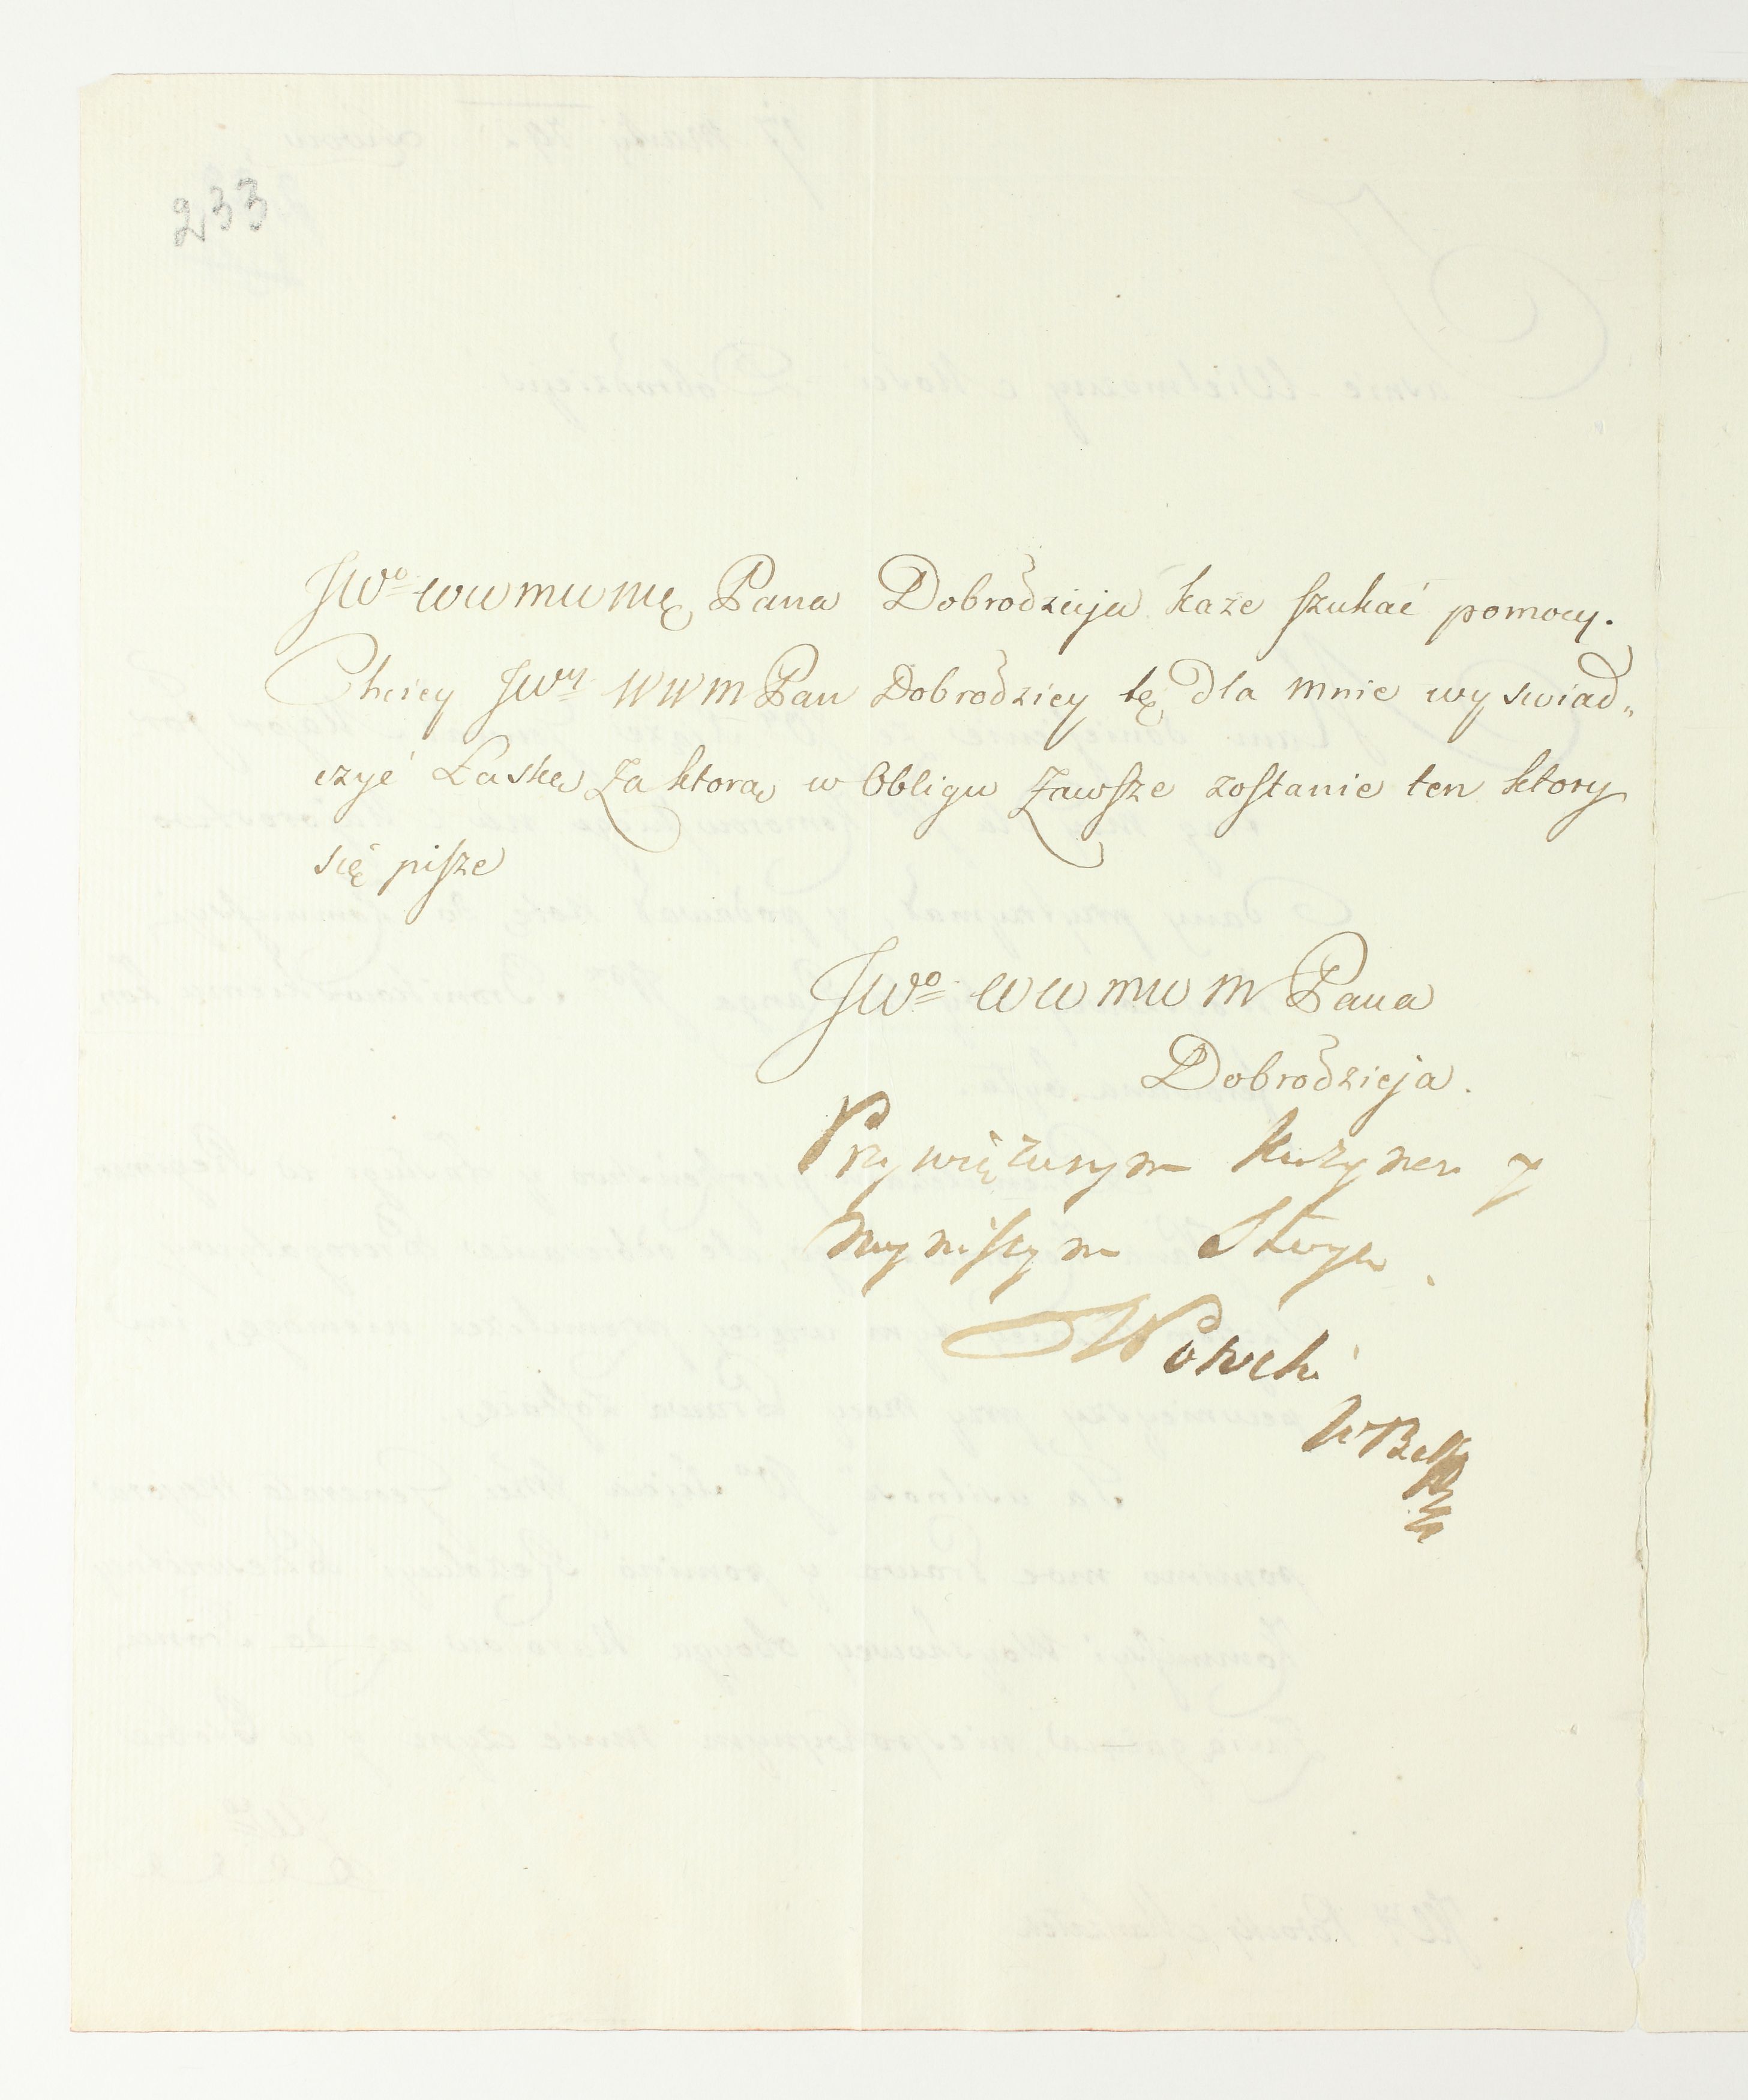 233
JWº WWMWMę Pana Dobrodzieja każe szukać pomocy.
Chciey JWy WWMPan Dobrodziey tę dla mnie wyswiad„
czyć Łaskę Za ktorą w Obligu Zawsze zostanie ten ktory
się pisze
JWº WWMWM Pana
Dobrodzieja.
Przywiązanym Kuzynem y
nayniszym Sługą.
Potocki